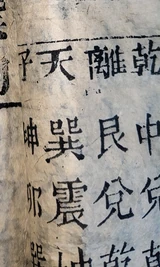 乾中兌
離艮兌乾
天巽震
子坤卯